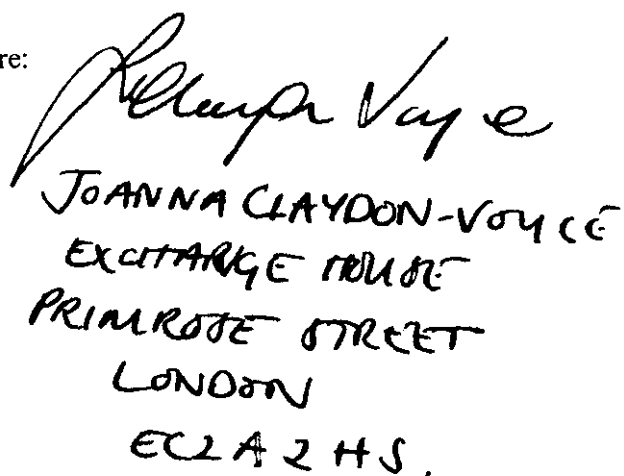 re:
JOANNA CLAYDON-VOYCE
EXCHANGE HOUSE
PRIMROSE STREET
LONDON
EC2A 2HS.